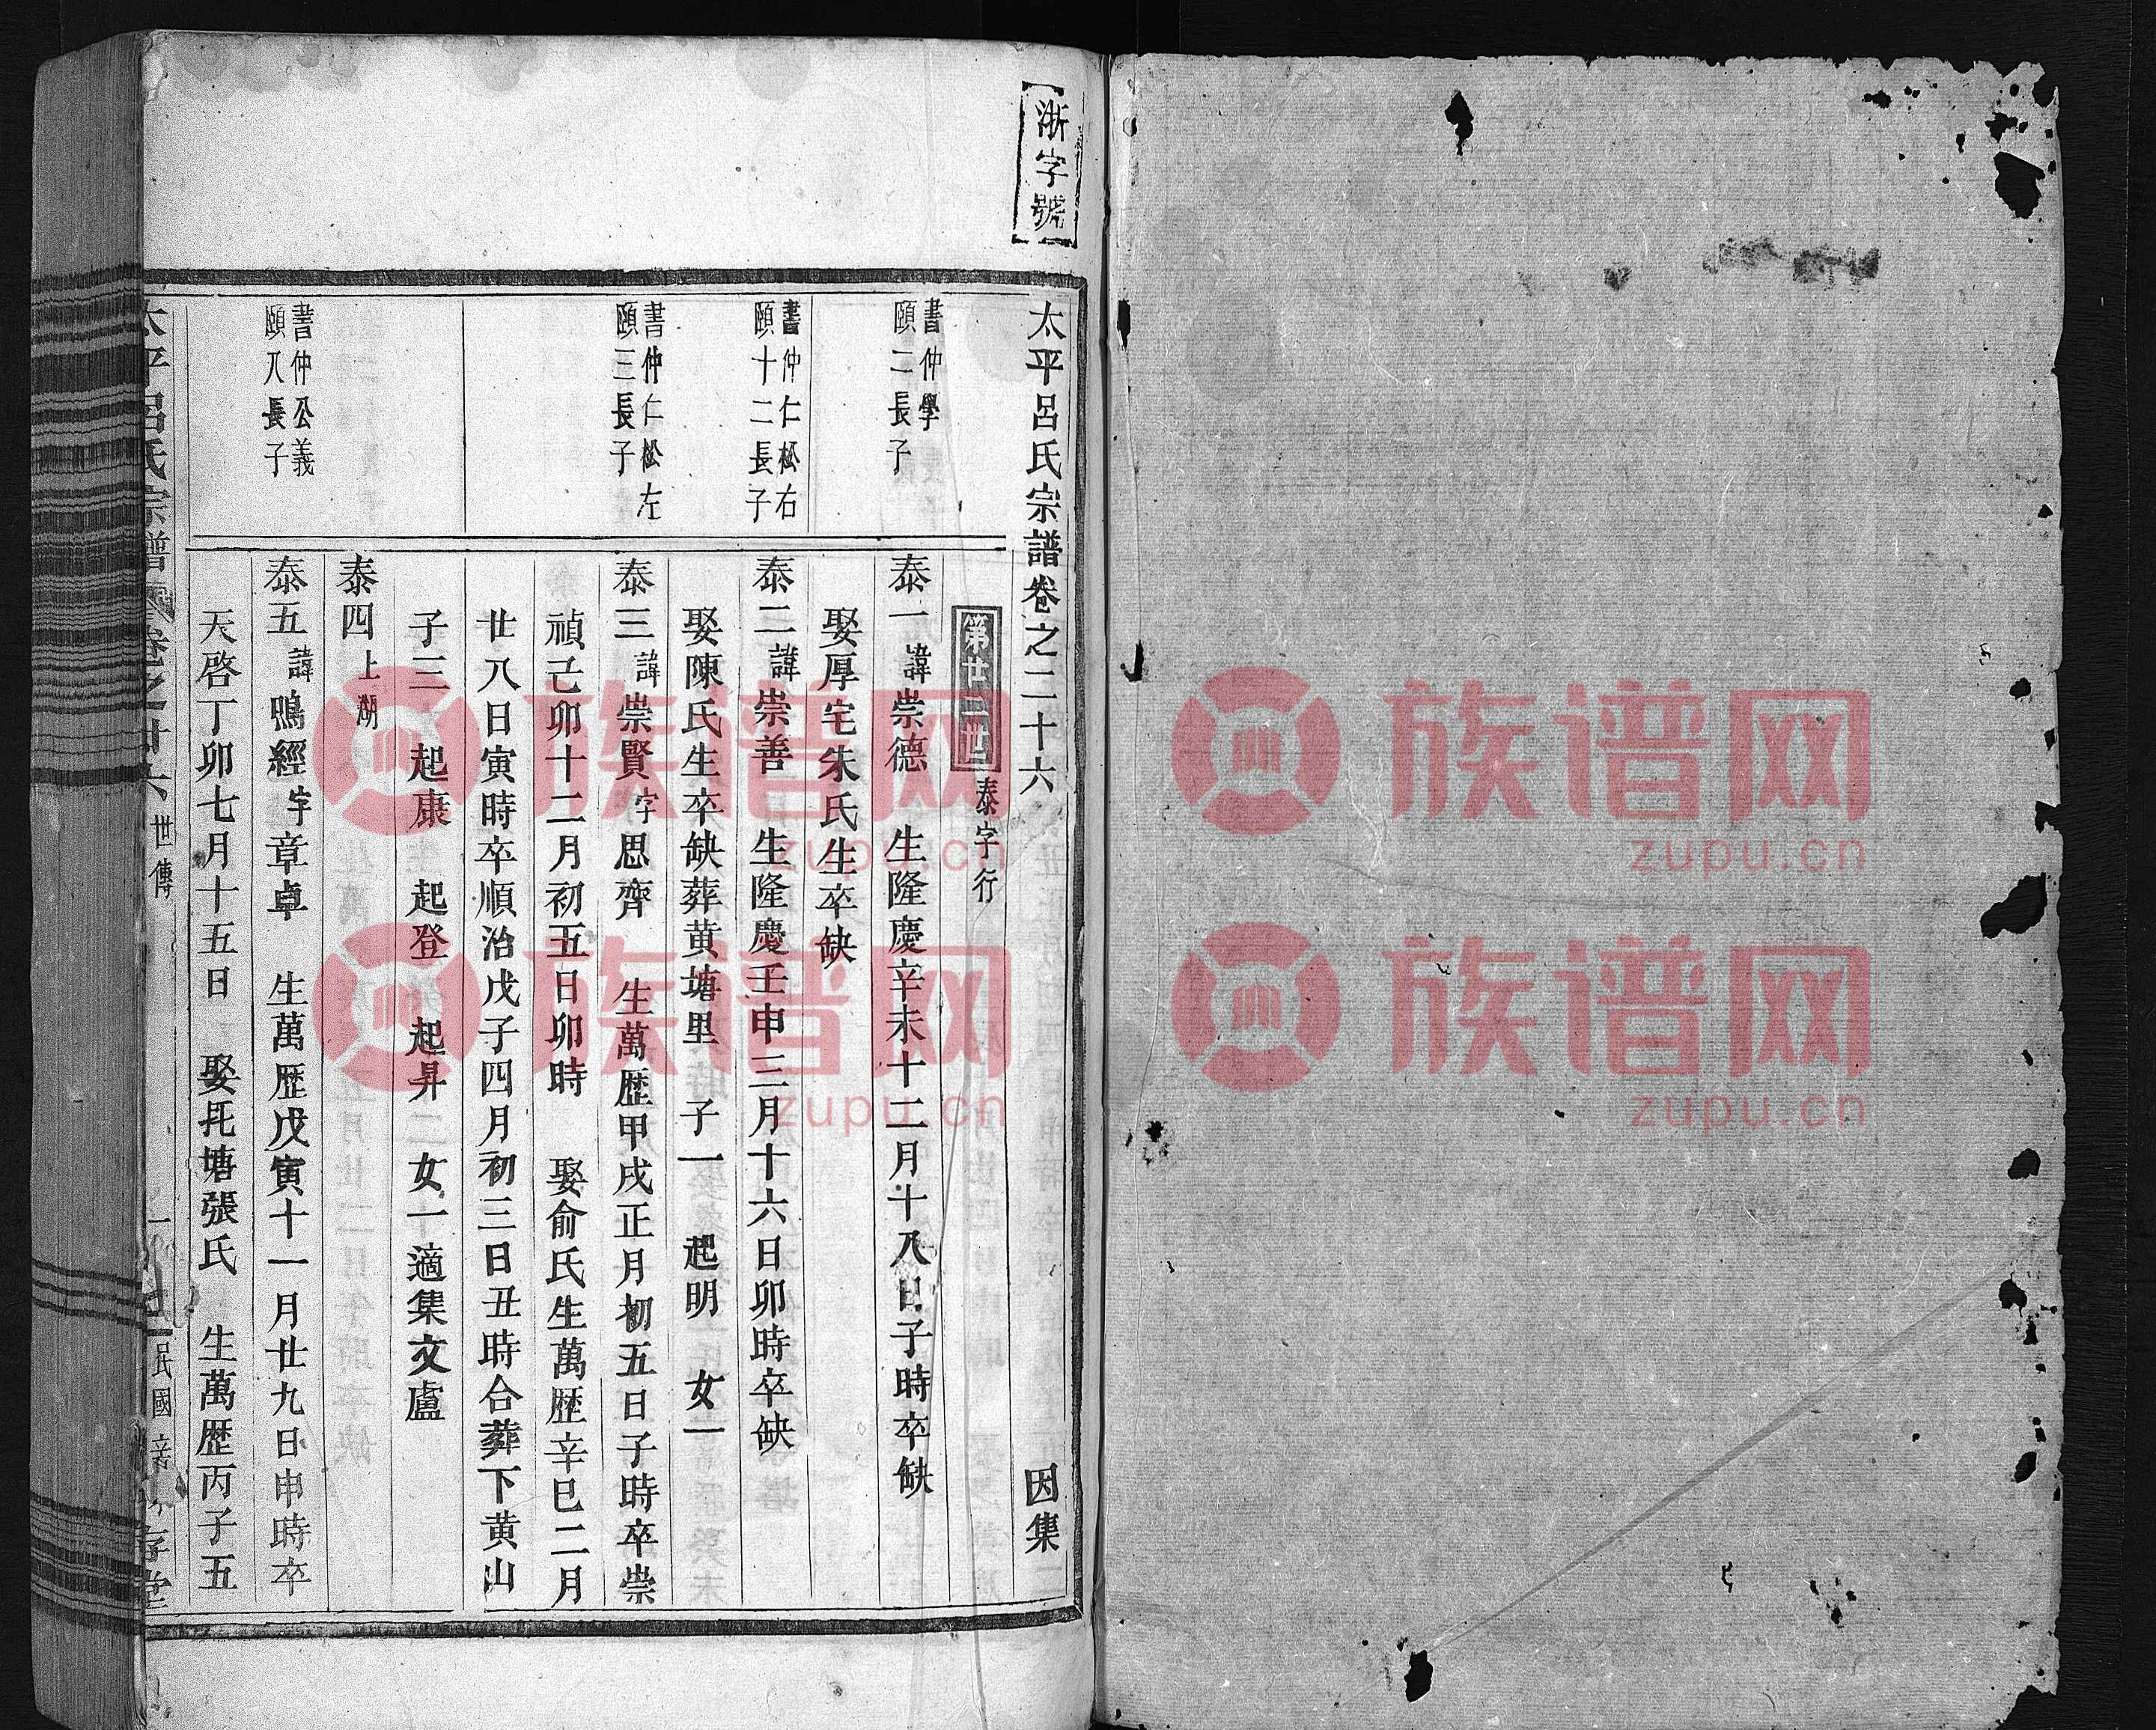 浙字號
太平呂氏宗譜卷之二十六 因集
第廿二世 泰字行
書仲學
頤二長子
泰一 諱崇德 生隆慶辛未十二月十八日子時卒缺
娶厚宅朱氏生卒缺
書仲仁松右
頤十二長子
泰二 諱崇善 生隆慶壬申三月十六日卯時卒缺
娶陳氏生卒缺葬黄塘里 子一 起明 女一
書仲仁松左
頤三長子
泰三 諱崇賢 字思齊 生萬歴甲戌正月初五日子時卒崇
禎己卯十二月初五日卯時 娶俞氏生萬歴辛巳二月
廿八日寅時卒順治戊子四月初三日丑時合葬下黄山
子三 起康 起登 起昇 女一適集文盧
泰四 上湖
書仲公義
頤八長子
泰五 諱鴨經 字章卓 生萬歴戊寅十一月廿九日申時卒
天啓丁卯七月十五日 娶托塘張氏 生萬歴丙子五
太平呂氏宗譜 卷之廿六 世傳 民國 存堂
族谱网
zupu.cn
族谱网
zupu.cn
族谱网
zupu.cn
族谱网
zupu.cn